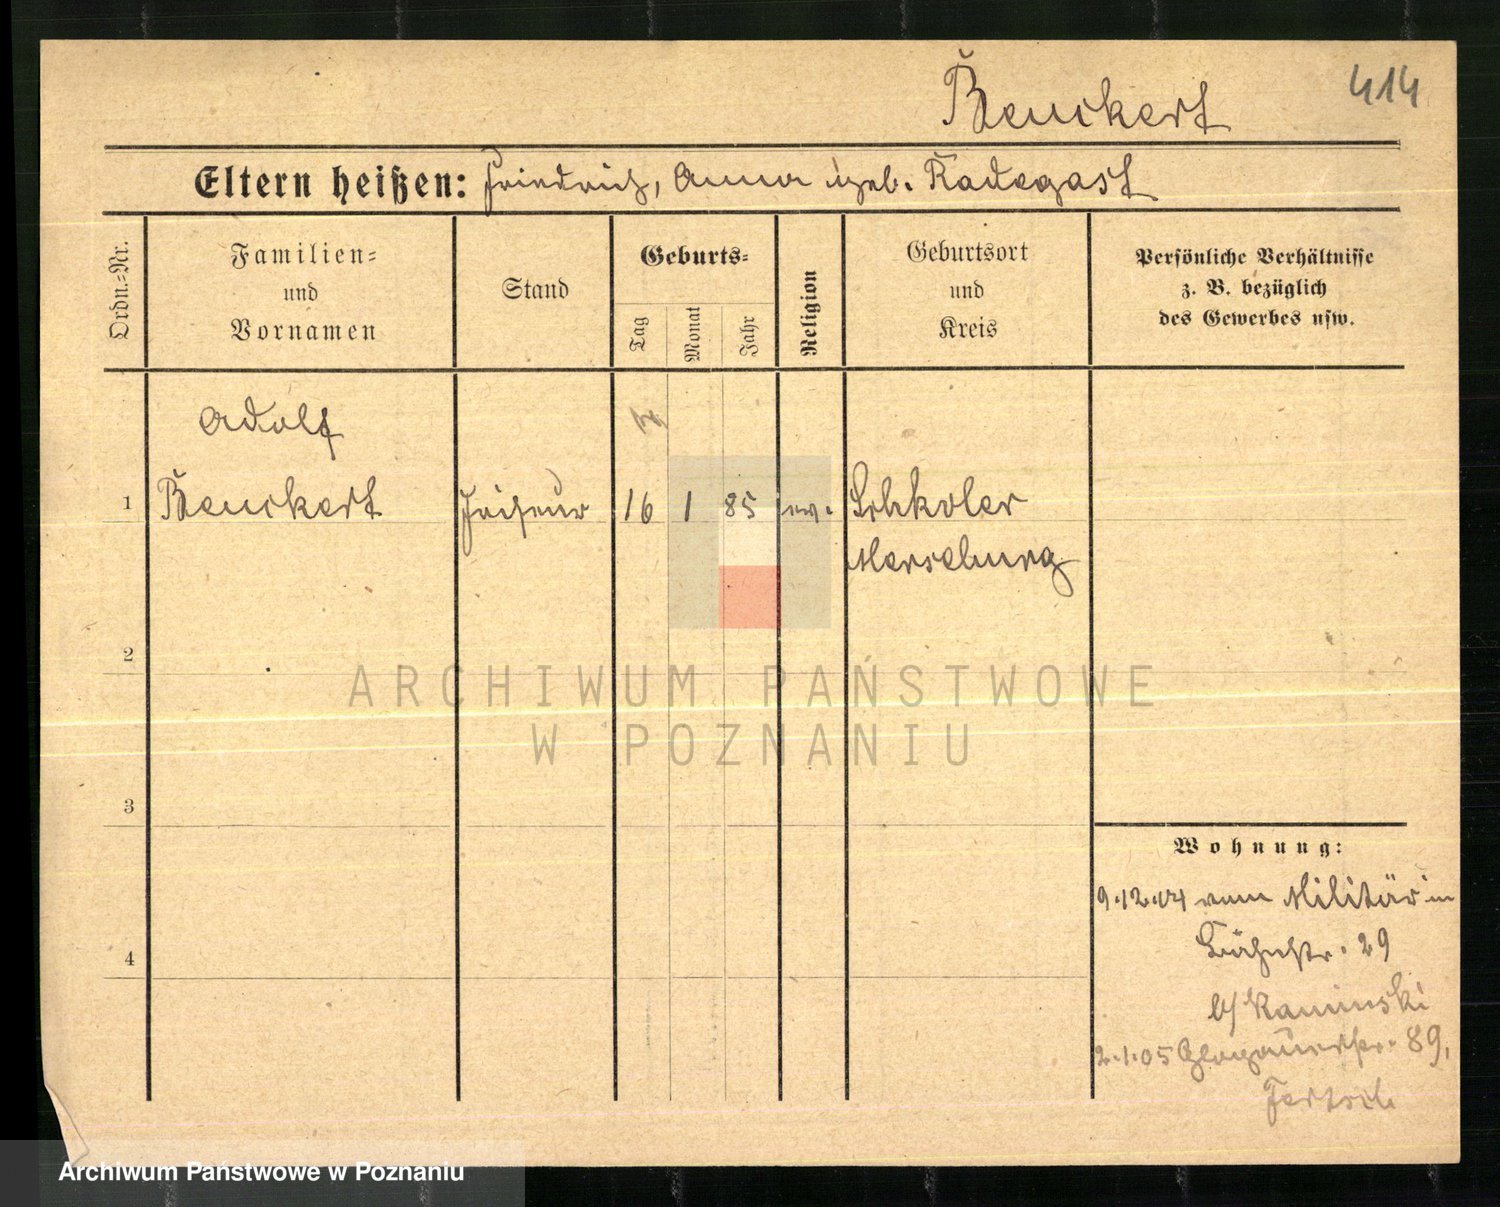 Beuckert 414
Eltern heißen: Friedrich, Anna geb. Radegast
Ordn.-Nr.
Familien-
und
Vornamen
Stand
Geburts-
Tag
Monat
Jahr
Religion
Geburtsort
und
Kreis
Persönliche Verhältnisse
z. B. bezüglich
des Gewerbes usw.
Adolf
1 Beuckert Friseur 16 1 85 ev.
Merseburg
2
3
4
ARCHIWUM PAŃSTWOWE
W POZNANIU
Wohnung:
9.12.04 vom Militär in
29
b/ Kaminski
2.1.05 Glogauerstr. 89,
Archiwum Państwowe w Poznaniu